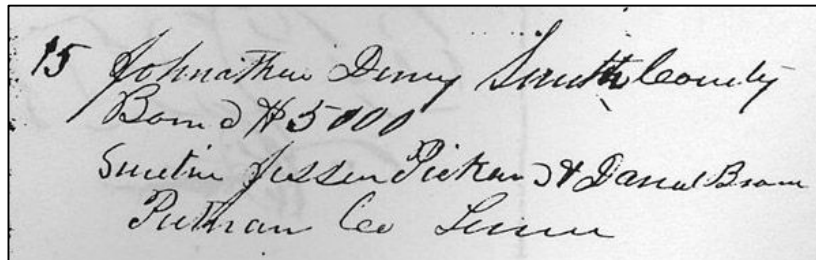 15 Johnathan Denny Smith County
Bond $5000
Suretin Jessee Pickard & Daniel Brown
Putnam Co Tenne